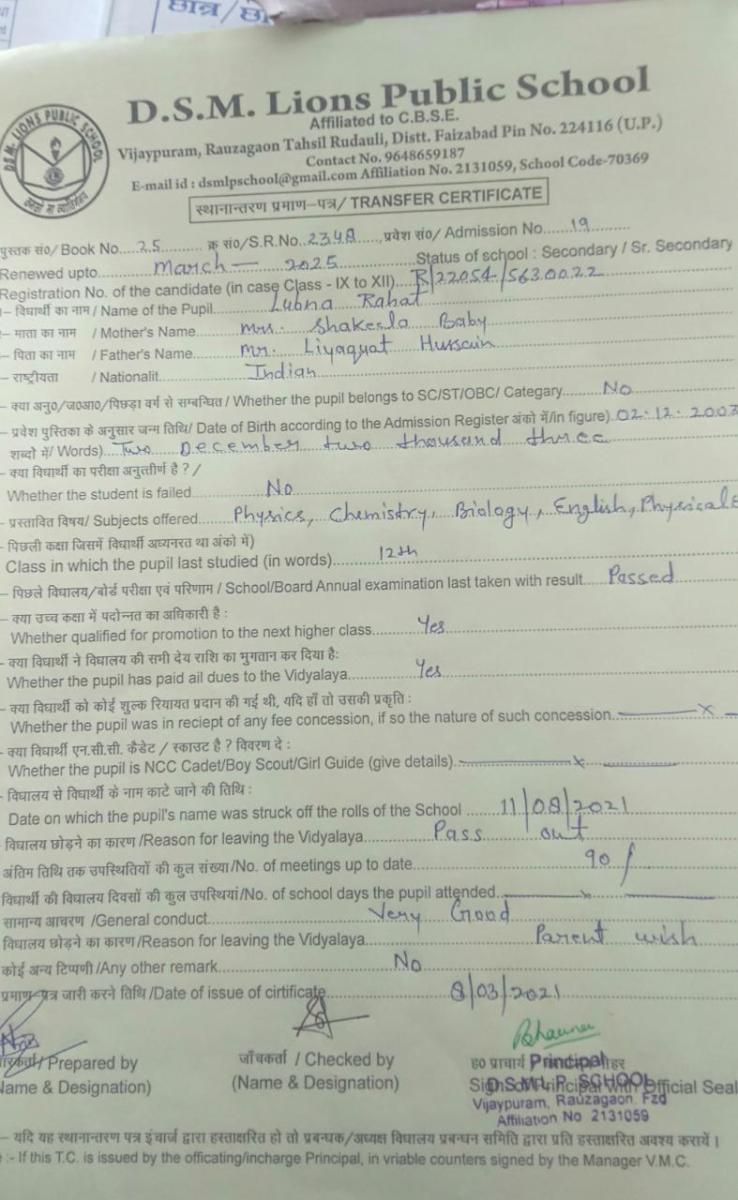 छात्र/छा
D.S.M. LIONS PUBLIC SCHOOL
D.S.M. Lions Public School
Affiliated to C.B.S.E.
Vijaypuram, Rauzagaon Tahsil Rudauli, Distt. Faizabad Pin No. 224116 (U.P.)
Contact No. 9648659187
E-mail id : dsmlpschool@gmail.com Affiliation No. 2131059, School Code-70369
स्थानान्तरण प्रमाण-पत्र/ TRANSFER CERTIFICATE
पुस्तक सं०/ Book No. 25 क्र सं०/S.R.No. 2348 प्रवेश सं०/ Admission No. 19
Renewed upto March - 2025 Status of school : Secondary / Sr. Secondary
Registration No. of the candidate (in case Class - IX to XII) R/22054/5630022
- विधार्थी का नाम / Name of the Pupil Lubna Rahat
- माता का नाम / Mother's Name Mrs. Shakeela Baby
- पिता का नाम / Father's Name Mr. Liyaquat Hussain
- राष्ट्रीयता / Nationalit Indian
- क्या अनु०/ज०आ०/पिछड़ा वर्ग से सम्बन्धित / Whether the pupil belongs to SC/ST/OBC/ Categary No
- प्रवेश पुस्तिका के अनुसार जन्म तिथि/ Date of Birth according to the Admission Register अंको में/in figure) 02.12.2003
शब्दो में/ Words) Two December two thousand three
- क्या विधार्थी का परीक्षा अनुत्तीर्ण है ? /
Whether the student is failed No
- प्रस्तावित विषय/ Subjects offered Physics, Chemistry, Biology, English, Physical E
- पिछली कक्षा जिसमें विधार्थी अध्यनरत था अंको में)
Class in which the pupil last studied (in words) 12th
- पिछले विघालय/बोर्ड परीक्षा एवं परिणाम / School/Board Annual examination last taken with result Passed
- क्या उच्च कक्षा में पदोन्नत का अधिकारी है :
Whether qualified for promotion to the next higher class Yes
- क्या विधार्थी ने विघालय की सभी देय राशि का भुगतान कर दिया है:
Whether the pupil has paid ail dues to the Vidyalaya Yes
- क्या विधार्थी को कोई शुल्क रियायत प्रदान की गई थी, यदि हाँ तो उसकी प्रकृति :
Whether the pupil was in reciept of any fee concession, if so the nature of such concession x
- क्या विधार्थी एन.सी.सी. कैडेट / स्काउट है ? विवरण दे :
Whether the pupil is NCC Cadet/Boy Scout/Girl Guide (give details) x
- विघालय से विधार्थी के नाम काटे जाने की तिथि :
Date on which the pupil's name was struck off the rolls of the School 11/08/2021
विघालय छोड़ने का कारण /Reason for leaving the Vidyalaya Pass out
अंतिम तिथि तक उपस्थितियों की कुल संख्या/No. of meetings up to date 90/
विधार्थी की विघालय दिवसों की कुल उपस्थियां/No. of school days the pupil attended x
सामान्य आचरण /General conduct Very Good
विघालय छोड़ने का कारण/Reason for leaving the Vidyalaya Parent wish
कोई अन्य टिप्पणी /Any other remark No
प्रमाण-पत्र जारी करने तिथि /Date of issue of cirtificate 8/03/2021
Prepared by जाँचकर्ता / Checked by ह० प्राचार्य Principal
Name & Designation) (Name & Designation) Official Seal
D.S.M.L.P. SCHOOL
Vijaypuram, Rauzagaon. Fzd
Affiliation No 2131059
- यदि यह स्थानान्तरण पत्र इंचार्ज द्वारा हस्ताक्षरित हो तो प्रबन्धक/अध्यक्ष विघालय प्रबन्धन समिति द्वारा प्रति हस्ताक्षरित अवश्य करायें ।
:- If this T.C. is issued by the officating/incharge Principal, in vriable counters signed by the Manager V.M.C.